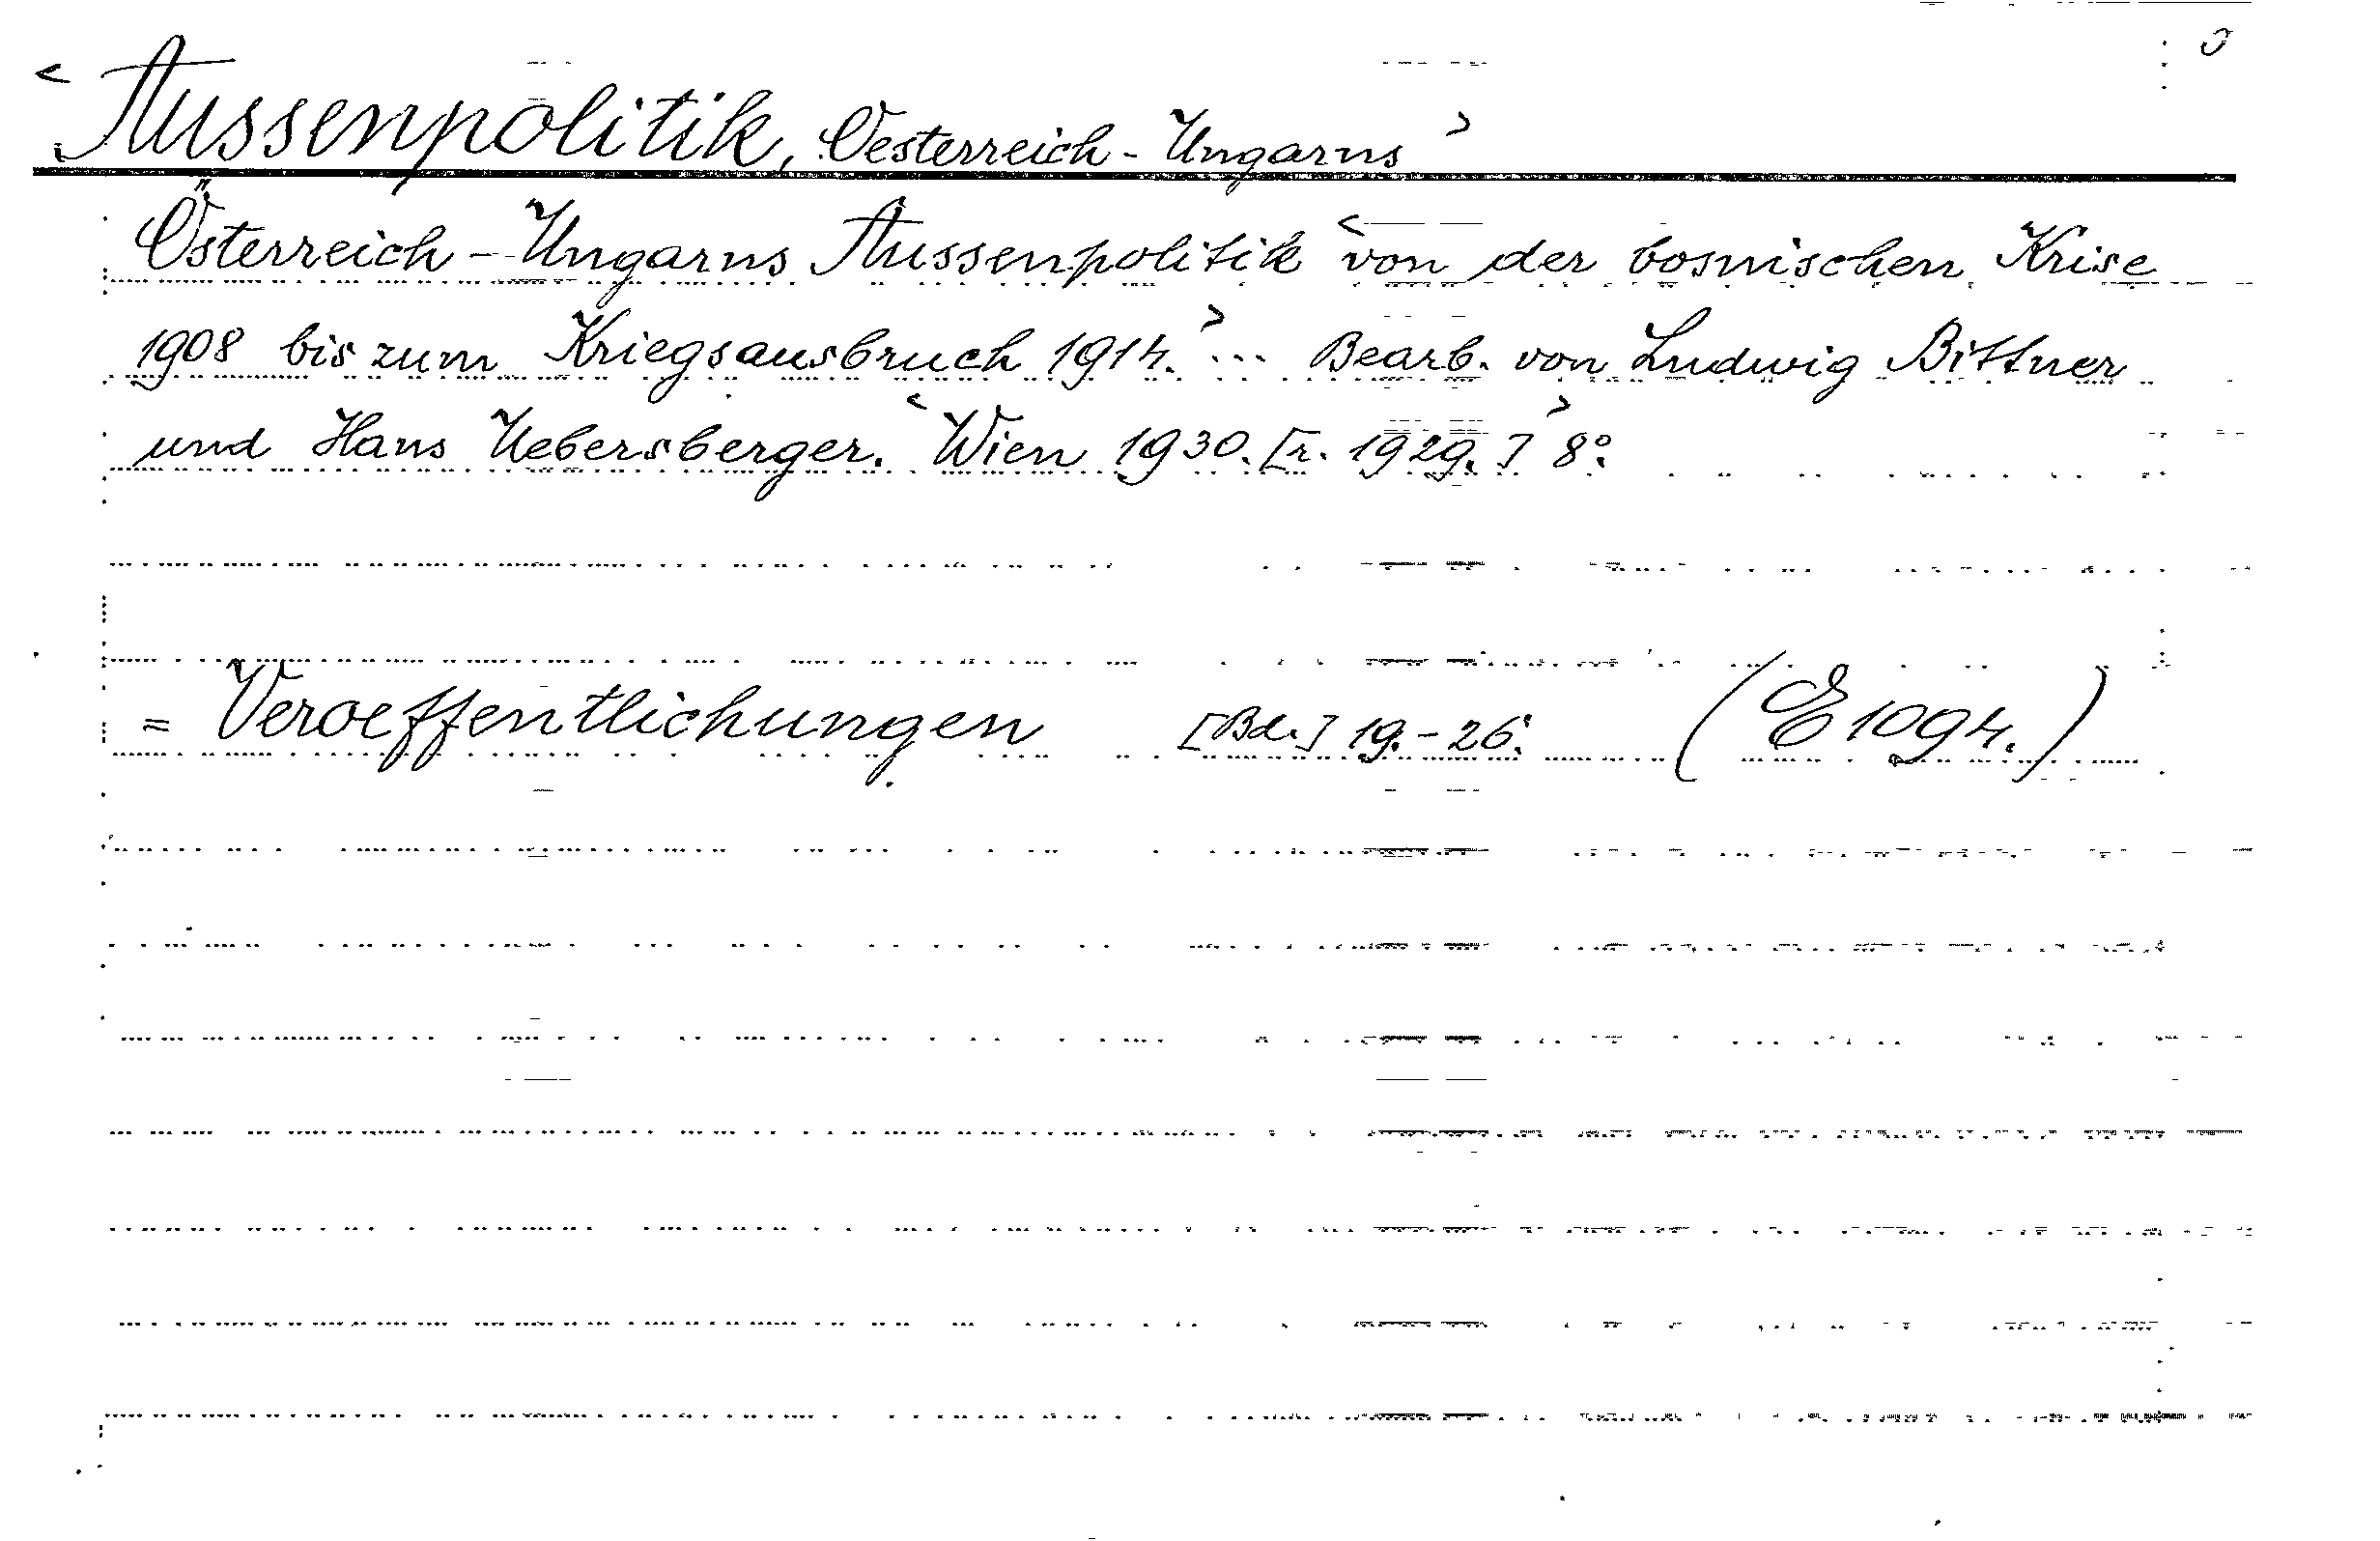 < Aussenpolitik, Oesterreich-Ungarns >
Österreich-Ungarns Aussenpolitik < von der bosnischen Krise
1908 bis zum Kriegsausbruch 1914. > ... Bearb. von Ludwig Bittner
und Hans Uebersberger. < Wien 1930. [r. 1929.] > 8°.
= Veroeffentlichungen [Bd.] 19.-26. (E 1094.)